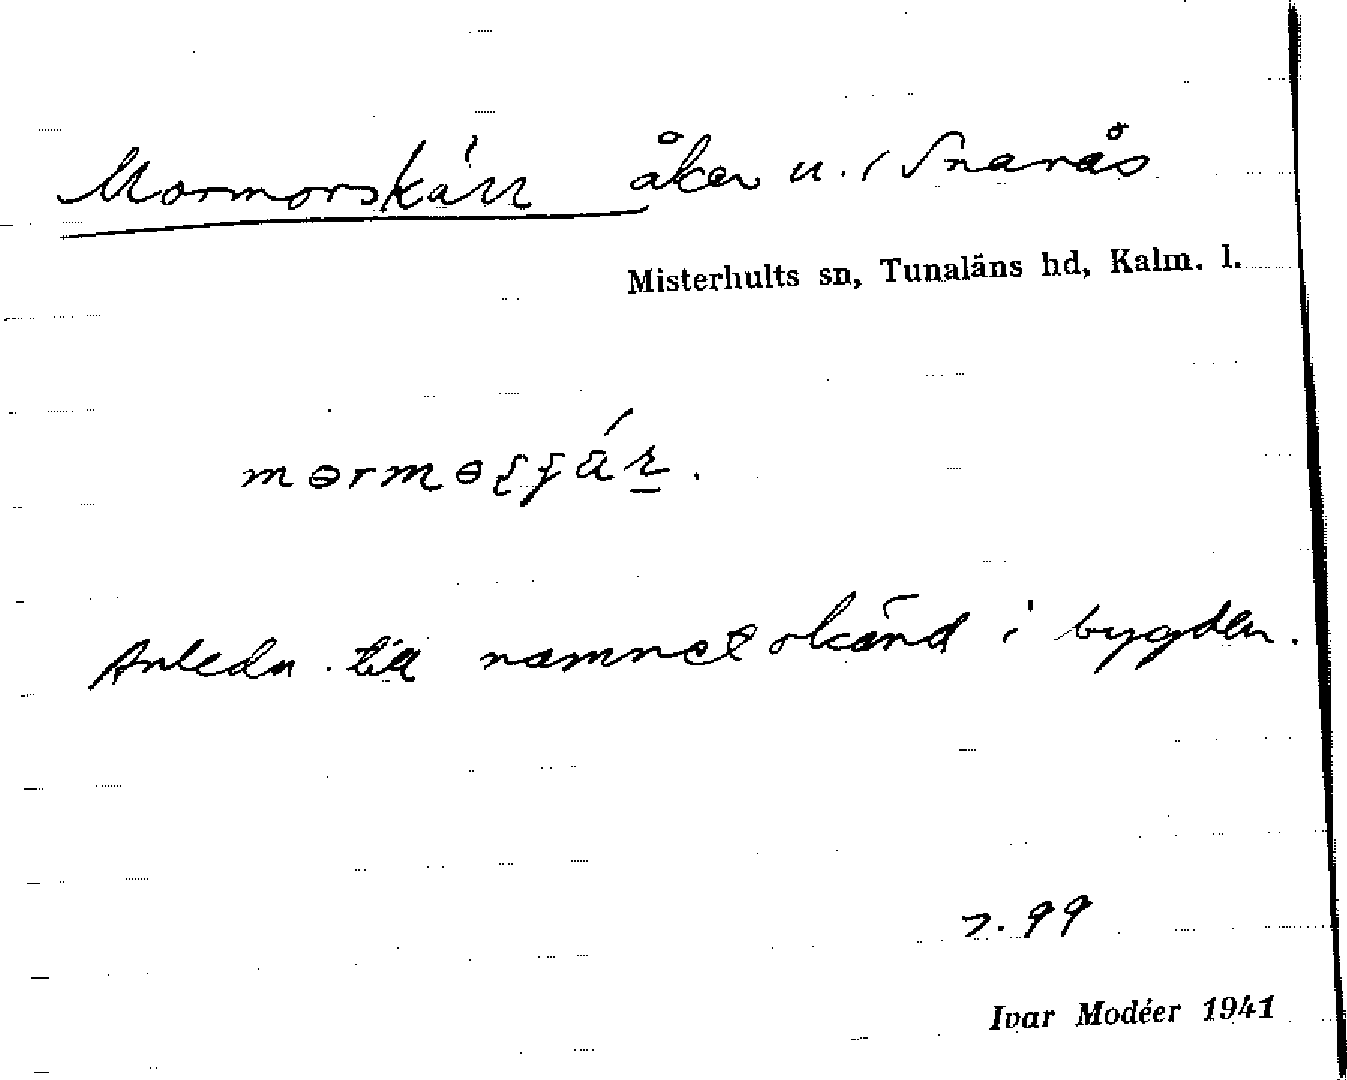 Mormorskärr åker u. / Snarås
Misterhults sn, Tunaläns hd, Kalm. l.
Anledn. till namnet okänd i bygden.
7.99
Ivar Modéer 1941